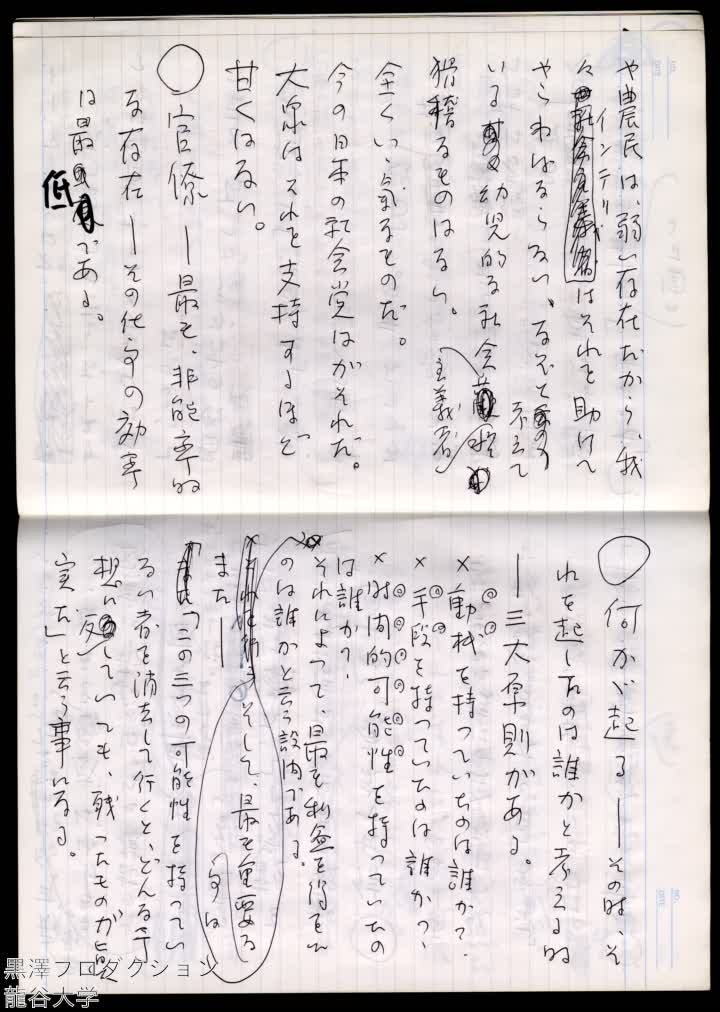 や農民は、弱い存在だから、我
々インテリがはそれを助けへ
やらねばならない、などと考えて
いる幼児的な社会主義者程
滑稽なものはない。
全くいゝ気なものだ。
今の日本の社会党はがそれだ。
大衆はそれを支持するほど
甘くはない。
○ 官僚 ― 最も、非能率的
な存在 ― その仕事の効率
は最低である。
○ 何かが起る ― その時、そ
れを起したのは誰かと考える時
― 三大原則がある。
× 動機を持っていたのは誰か?
× 手段を持っていたのは誰か?
× 時間的可能性を持っていたの
は誰か?
そして、最も重要な事は
それによって、最も利益を得る
のは誰かと云う設問である。
また ―
「この三つの可能性を持ってい
ない者を消去して行くと、どんな予
想に反していても、残ったものが真
実だ」と云う事になる。
黒澤プロダクション
龍谷大学